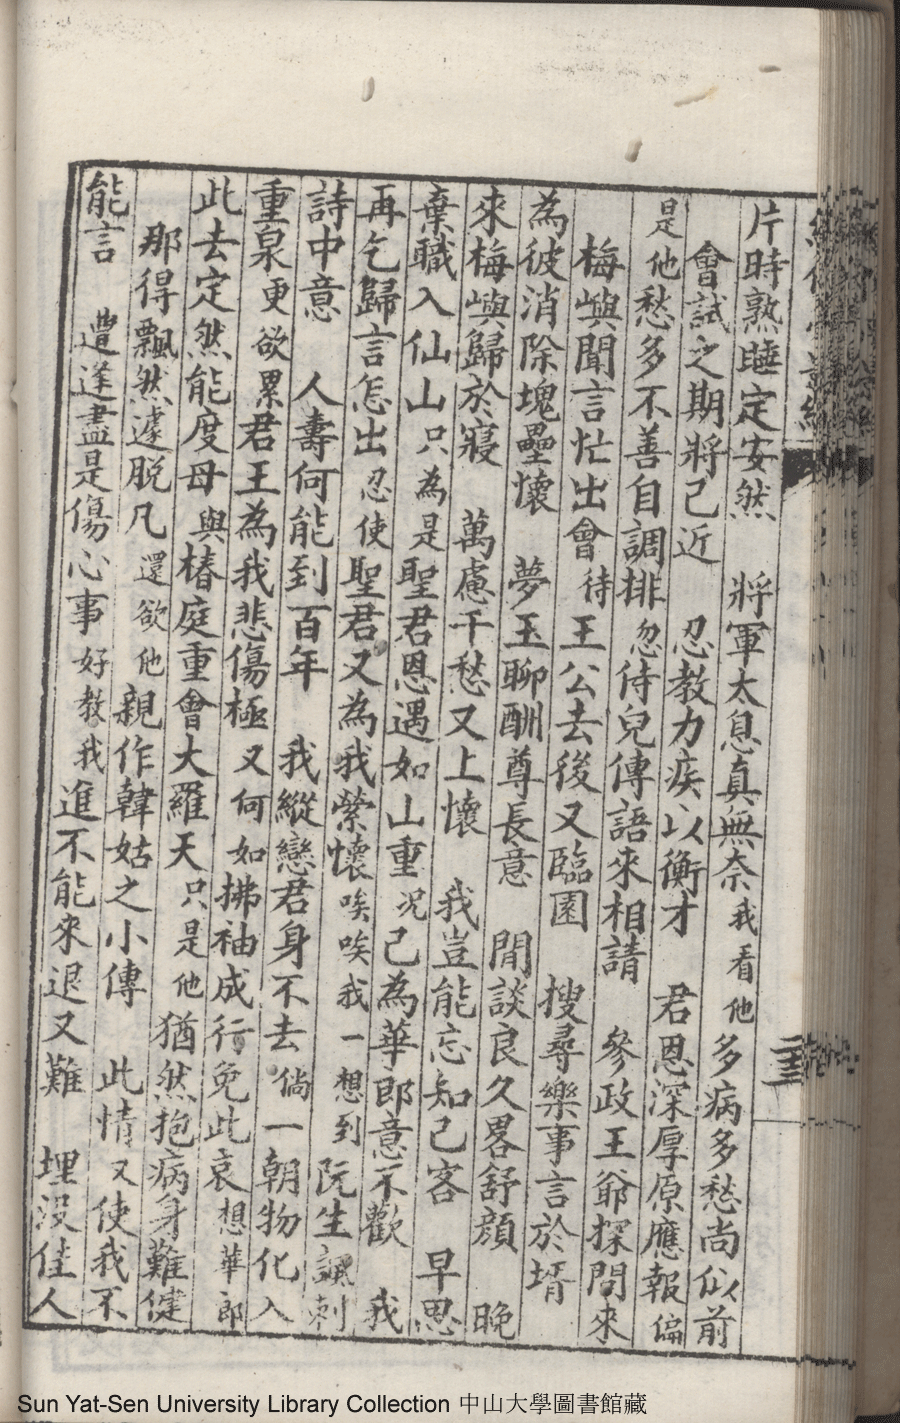 片時熟睡定安然　將軍太息真無奈我看他多病多愁尚似前
會試之期將已近　忍教力疾以衡才　君恩深厚原應報偏
是他愁多不善自調排忽侍兒傳語來相請　參政王爺探問來
梅嶼聞言忙出會待王公去後又臨園　搜尋樂事言於壻
為彼消除塊壘懷　夢玉聊酬尊長意　閒談良久畧舒顔　晚
來梅嶼歸於寢　萬慮千愁又上懷　我豈能忘知己客　早思
棄職入仙山只為是聖君恩遇如山重况已為華郎意不歡　我
再乞歸言怎出忍使聖君又為我縈懷唉唉我一想到阮生諷刺
詩中意　人壽何能到百年　我縱戀君身不去倘一朝物化入
重泉更欲累君王為我悲傷極又何如拂袖成行免此哀想華郎
此去定然能度母與椿庭重會大羅天只是他猶然抱病身難健
那得飄然遽脫凡還欲他親作韓姑之小傳　此情又使我不
能言　遭逢盡是傷心事好教我進不能來退又難　埋沒佳人
Sun Yat-Sen University Library Collection 中山大學圖書館藏